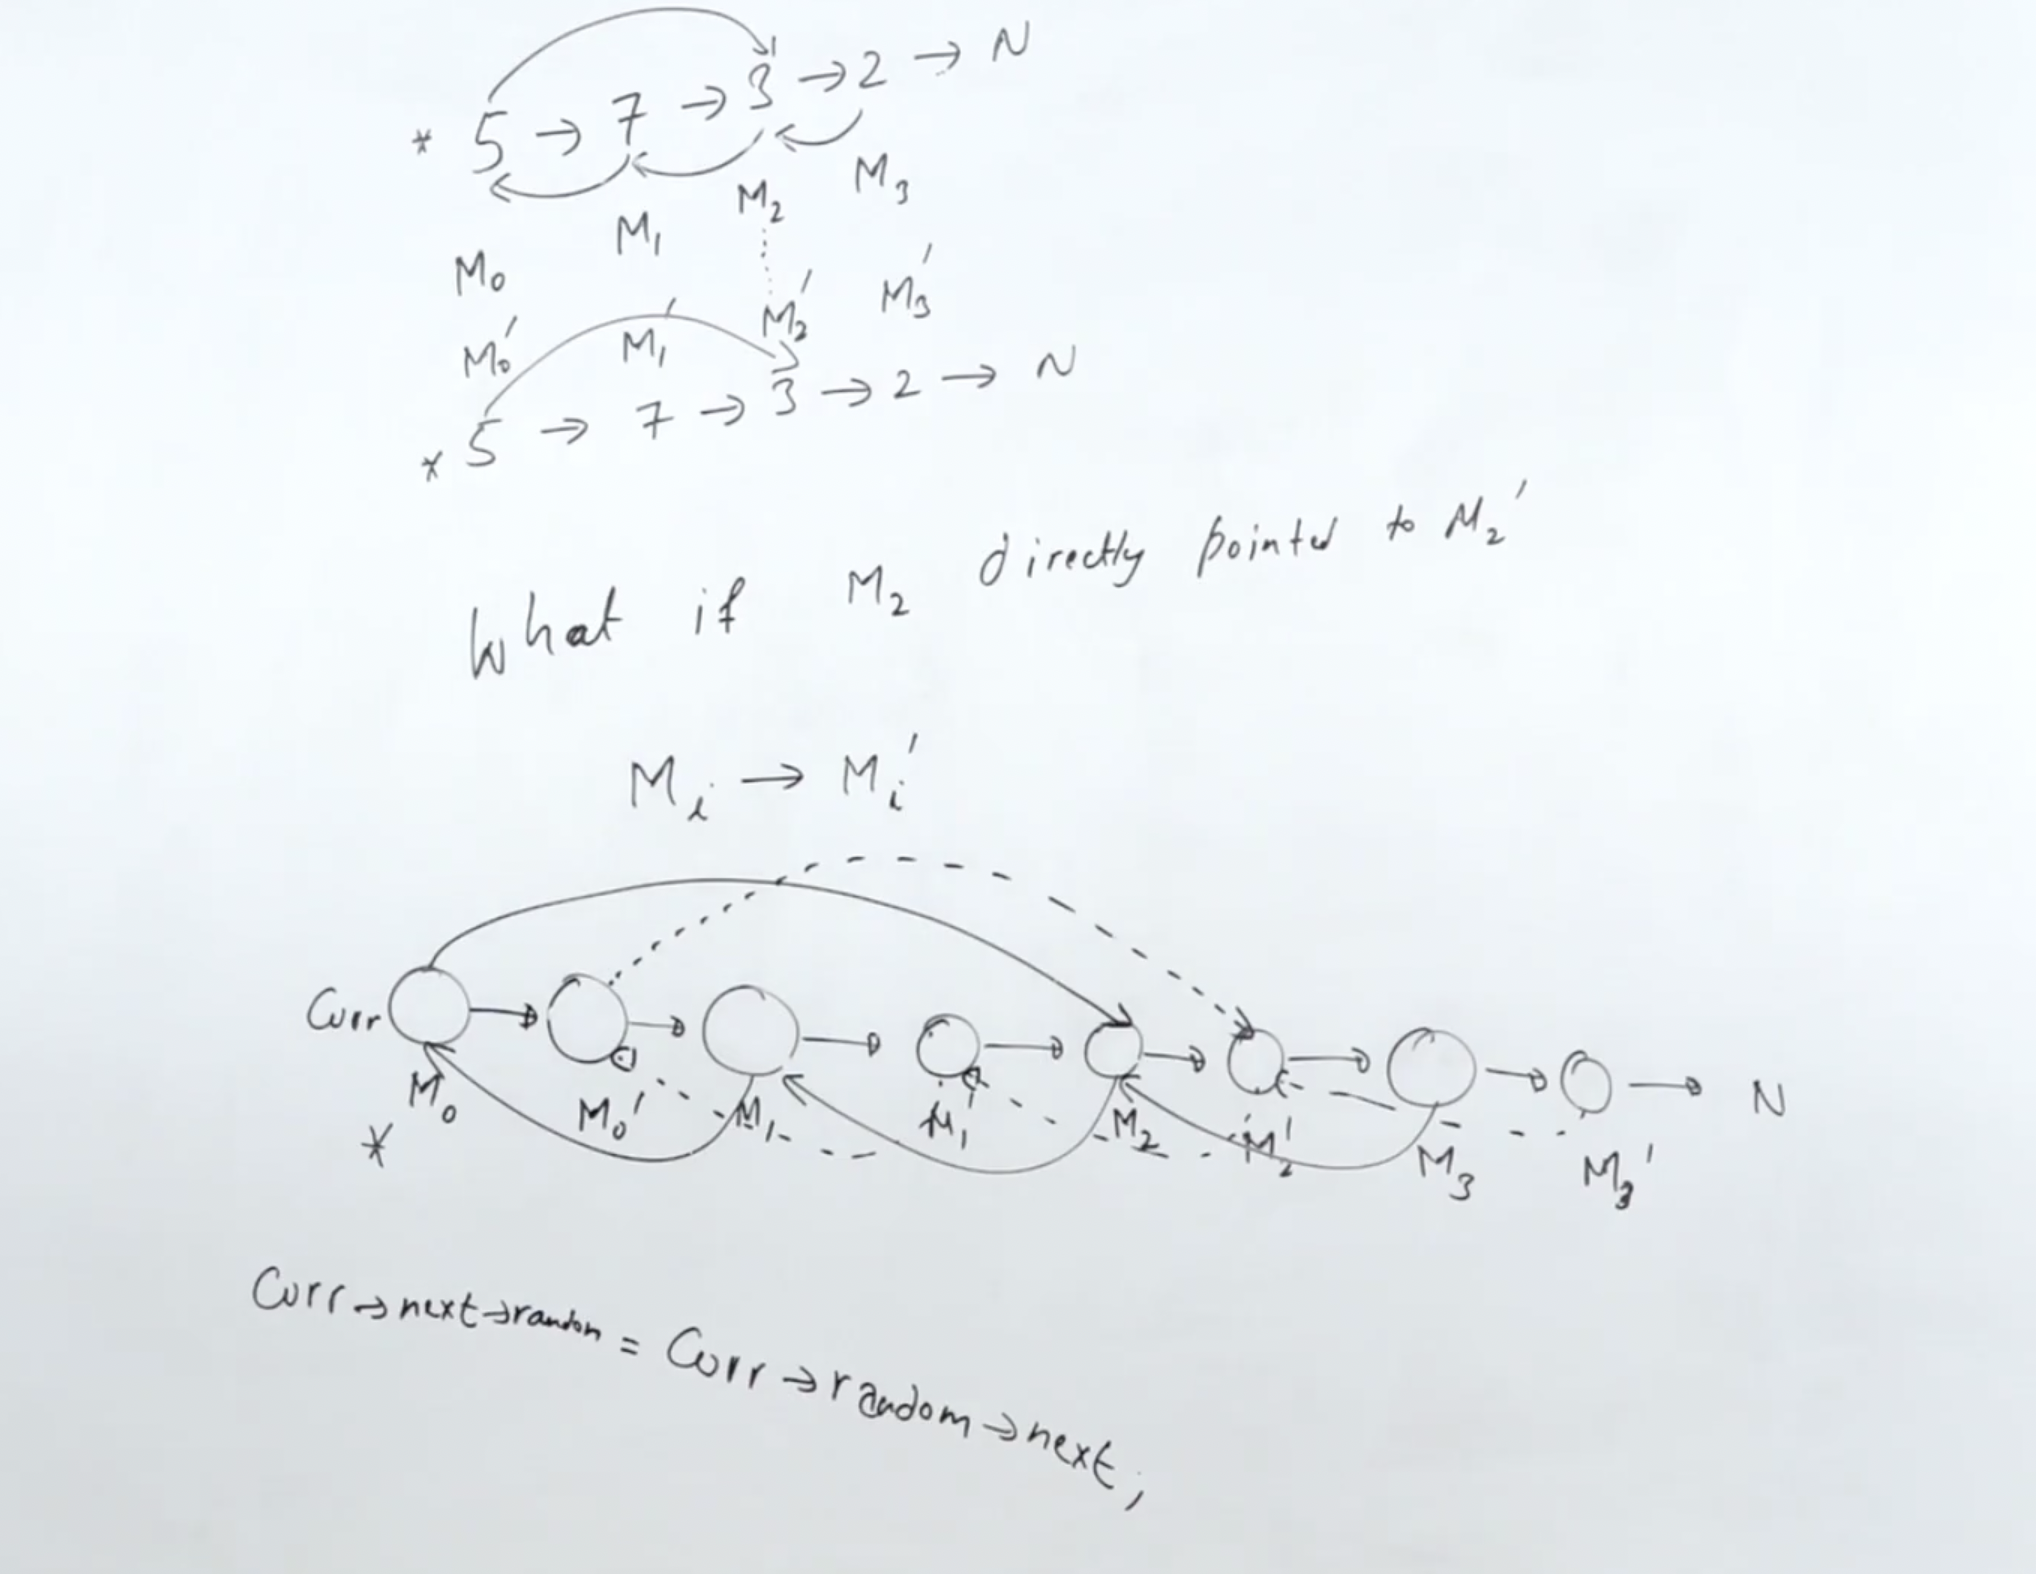 * 5 → 7 → 3 → 2 → N
M₀ M₁ M₂ M₃
M₀′ M₁′ M₂′ M₃′
* 5 → 7 → 3 → 2 → N
What if M₂ directly pointed to M₂′
Mᵢ → Mᵢ′
Curr → → → → → → → → N
* M₀ M₀′ M₁ M₁′ M₂ M₂′ M₃ M₃′
Curr→next→random = Curr→random→next;